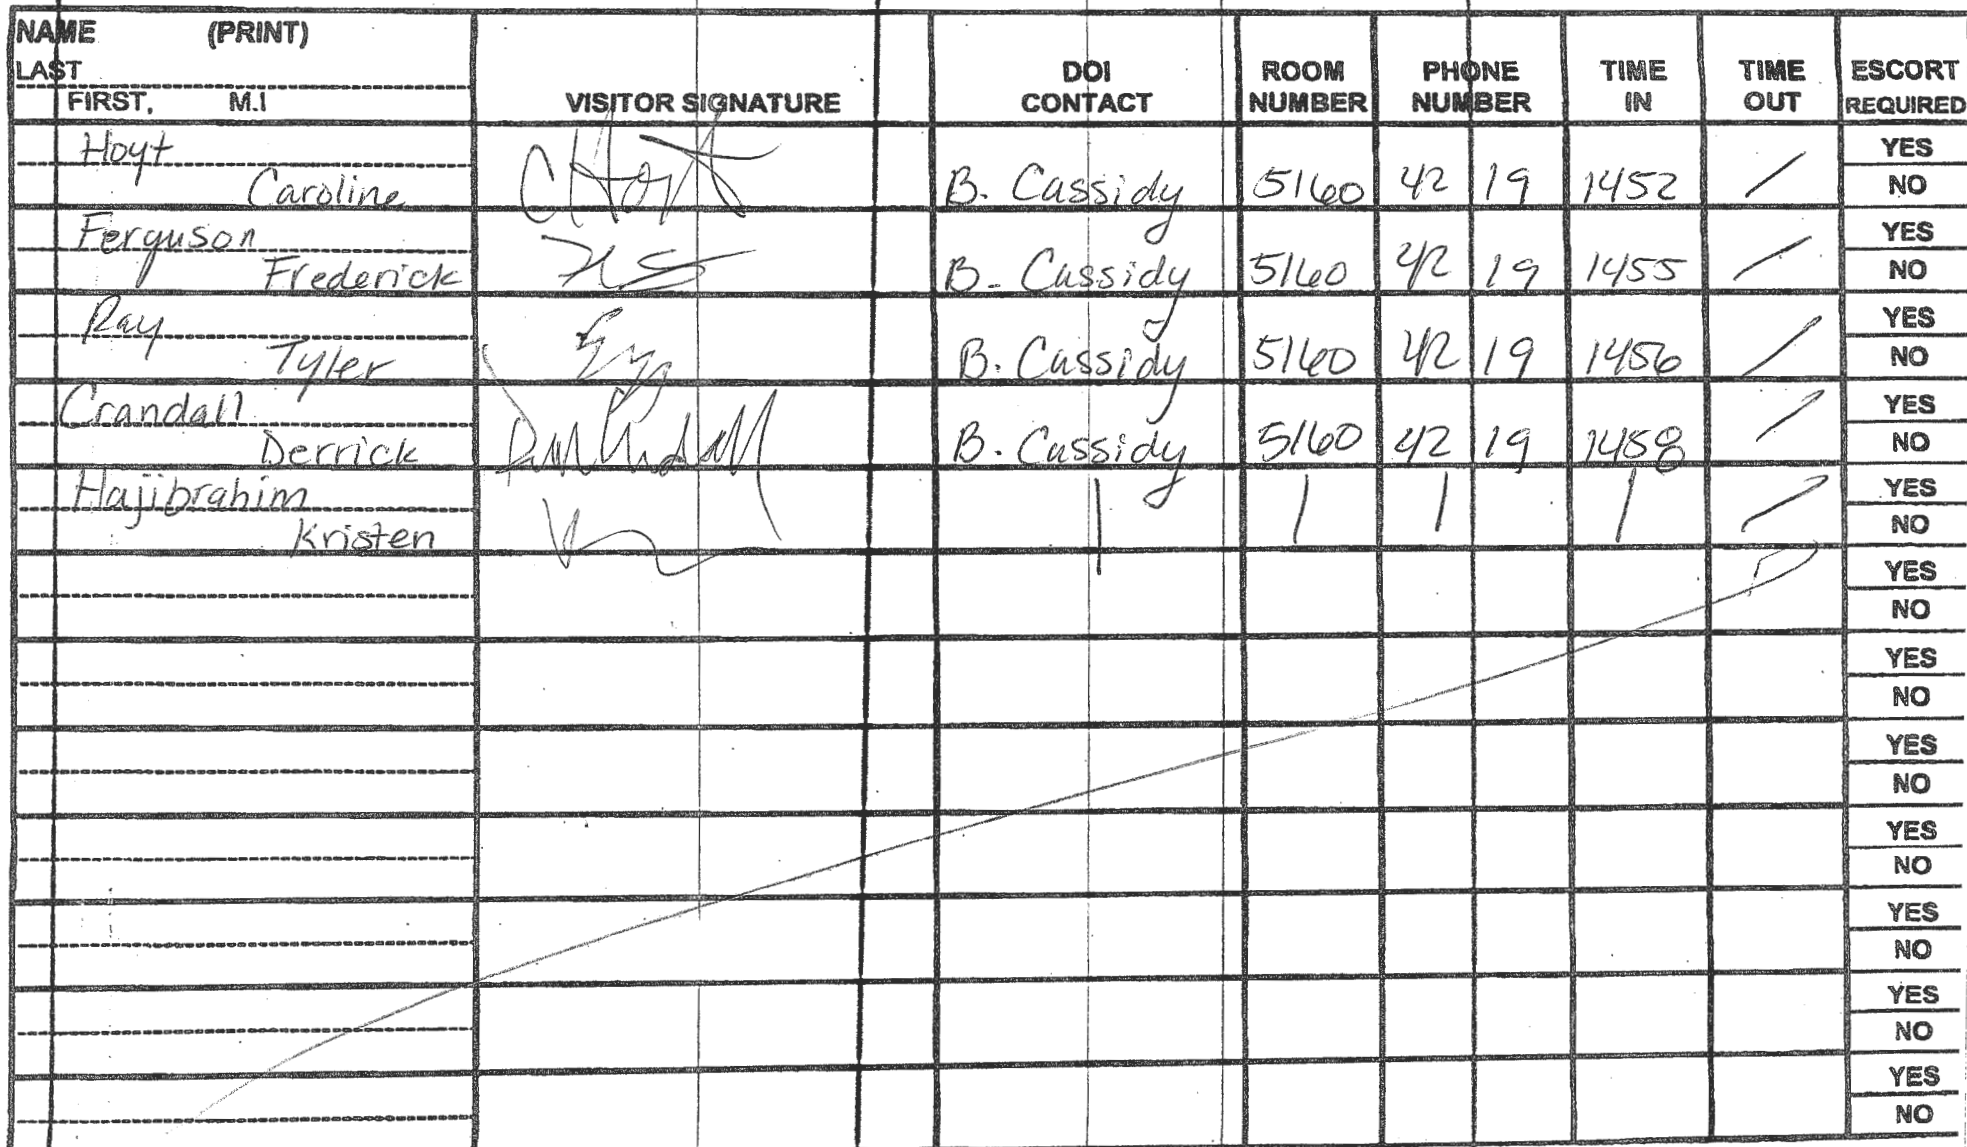 NAME (PRINT)
LAST
FIRST, M.I
VISITOR SIGNATURE
DOI CONTACT
ROOM NUMBER
PHONE NUMBER
TIME IN
TIME OUT
ESCORT REQUIRED
Hoyt
Caroline
CHoyt
B. Cassidy 5160 42 19 1452 /
YES
NO
Ferguson
Frederick
B. Cassidy 5160 42 19 1455 /
YES
NO
Ray
Tyler
B. Cassidy 5160 42 19 1456 /
YES
NO
Crandall
Derrick
B. Cassidy 5160 42 19 1458 /
YES
NO
Hajibrahim
Kristen
| | | | /
YES
NO
YES
NO
YES
NO
YES
NO
YES
NO
YES
NO
YES
NO
YES
NO